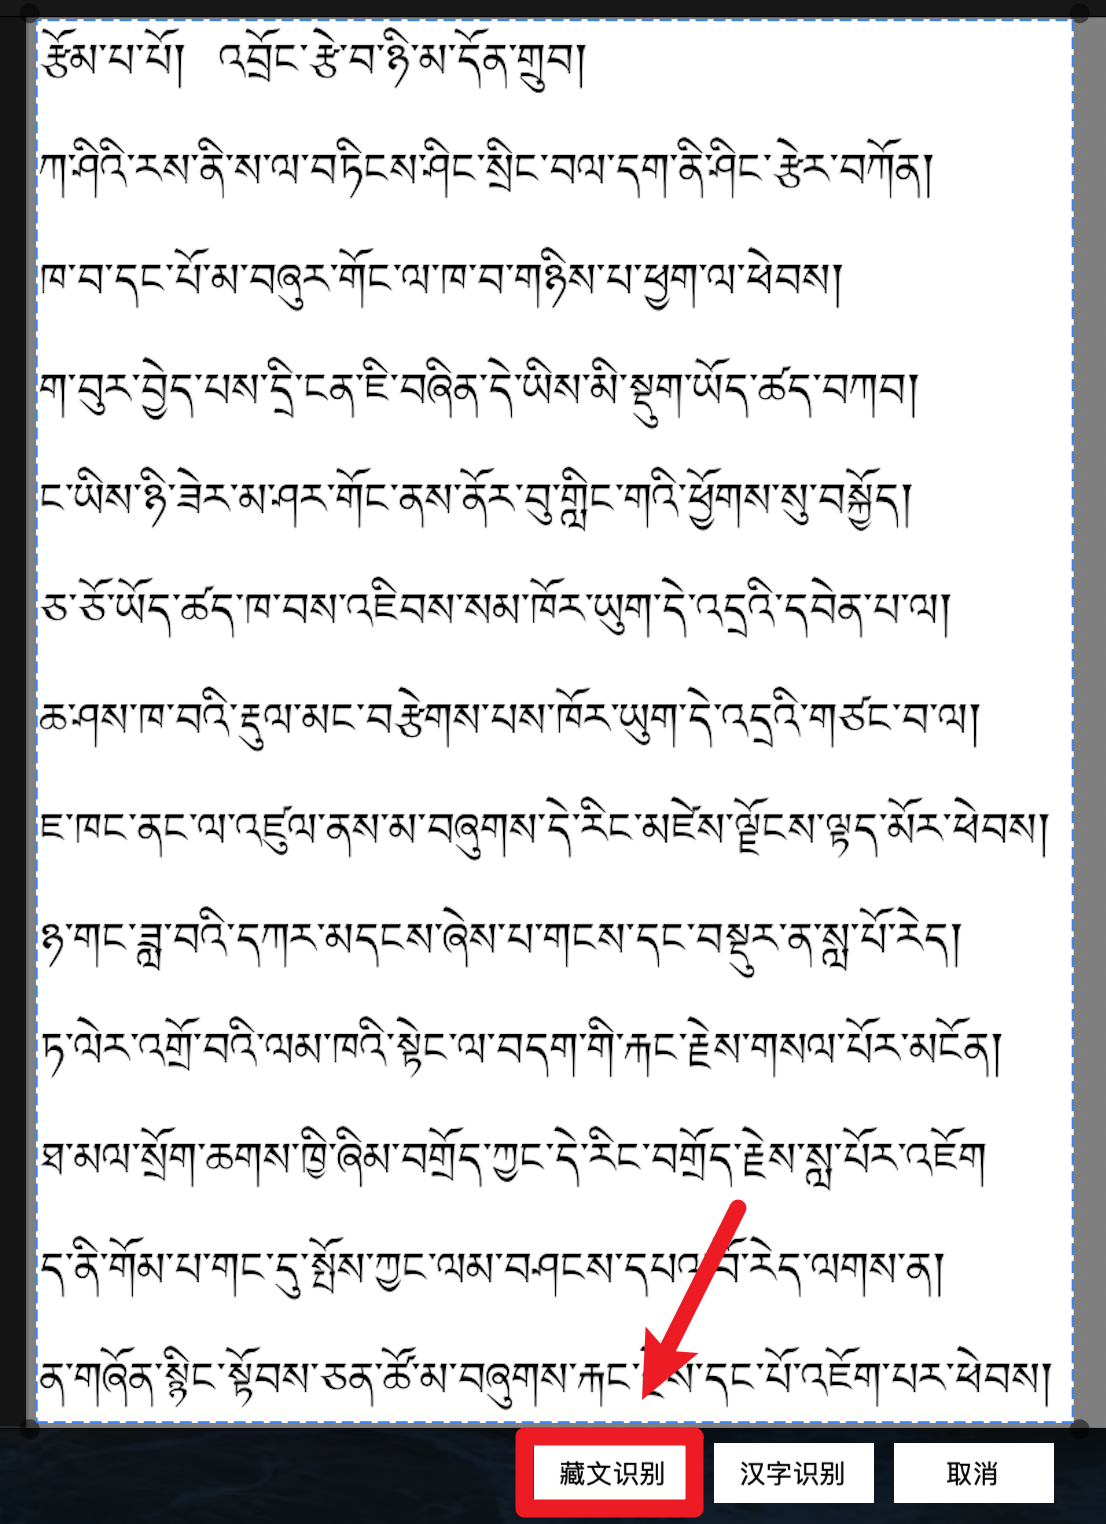 རྩོམ་པ་པོ།  འབྲོང་རྩེ་བ་ཉི་མ་དོན་གྲུབ།
ཀ་ཤིའི་རས་ནི་ས་ལ་བཏིངས་ཤིང་སྲིང་བལ་དག་ནི་ཤིང་རྩེར་བཀོན།
ཁ་བ་དང་པོ་མ་བཞུར་གོང་ལ་ཁ་བ་གཉིས་པ་ཕྱག་ལ་ཕེབས།
ག་བུར་བྱེད་པས་དྲི་ངན་ཇི་བཞིན་དེ་ཡིས་མི་སྡུག་ཡོད་ཚད་བཀབ།
ང་ཡིས་ཉི་ཟེར་མ་ཤར་གོང་ནས་ནོར་བུ་གླིང་གའི་ཕྱོགས་སུ་བསྐྱོད།
ཅ་ཅོ་ཡོད་ཚད་ཁ་བས་འཇིབས་སམ་ཁོར་ཡུག་དེ་འདྲའི་དབེན་པ་ལ།
ཆ་ཤས་ཁ་བའི་རྡུལ་མང་བརྩེགས་པས་ཁོར་ཡུག་དེ་འདྲའི་གཙང་བ་ལ།
ཇ་ཁང་ནང་ལ་འཛུལ་ནས་མ་བཞུགས་དེ་རིང་མཛེས་ལྗོངས་ལྟད་མོར་ཕེབས།
ཉ་གང་ཟླ་བའི་དཀར་མདངས་ཞེས་པ་གངས་དང་བསྡུར་ན་སླ་པོ་རེད།
ཏ་ལེར་འགྲོ་བའི་ལམ་ཁའི་སྟེང་ལ་བདག་གི་རྐང་རྗེས་གསལ་པོར་མངོན།
ཐ་མལ་སྲོག་ཆགས་ཁྱི་ཞིམ་བགྲོད་ཀྱང་དེ་རིང་བགྲོད་རྗེས་སླ་པོར་འཇོག
ད་ནི་གོམ་པ་གང་དུ་སྤོས་ཀྱང་ལམ་བཤངས་དཔའ་བོ་རེད་ལགས་ན།
ན་གཞོན་སྙིང་སྟོབས་ཅན་ཚོ་མ་བཞུགས་རྐང་རྗེས་དང་པོ་འཇོག་པར་ཕེབས།
藏文识别 汉字识别 取消